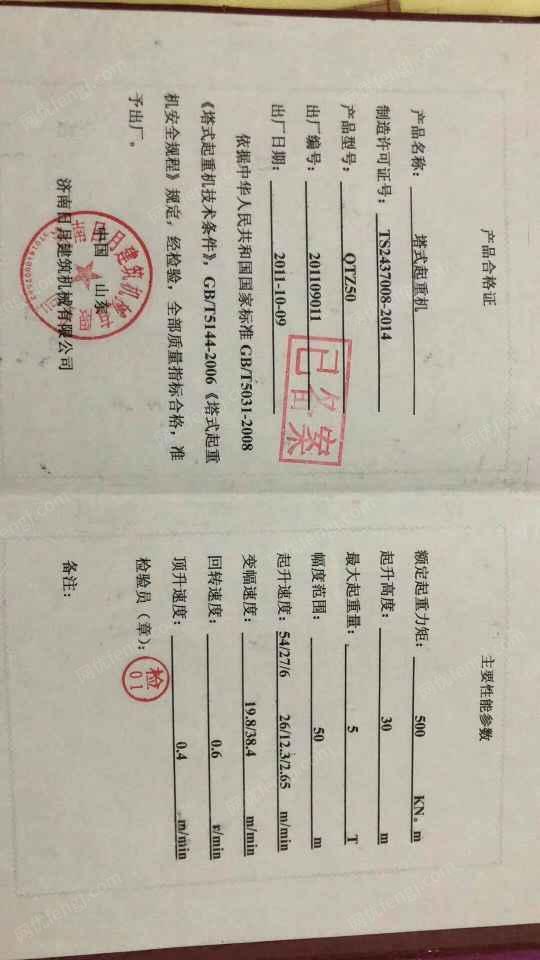 产品合格证
产品名称： 塔式起重机
制造许可证号： TS2437008-2014
产品型号： QTZ50
出厂编号： 201109011
出厂日期： 2011-10-09
依据中华人民共和国国家标准 GB/T5031-2008
《塔式起重机技术条件》，GB/T5144-2006《塔式起重
机安全规程》规定，经检验，全部质量指标合格，准
予出厂。
中国 山东
建筑机械有限公司
济南
已备案
主要性能参数
额定起重力矩： 500 KN。m
起升高度： 30 m
最大起重量： 5 T
幅度范围： 50 m
起升速度： 54/27/6 26/12.3/2.65 m/min
变幅速度： 19.8/38.4 m/min
回转速度： 0.6 r/min
顶升速度： 0.4 m/min
检验员（章）：
检
01
备注：